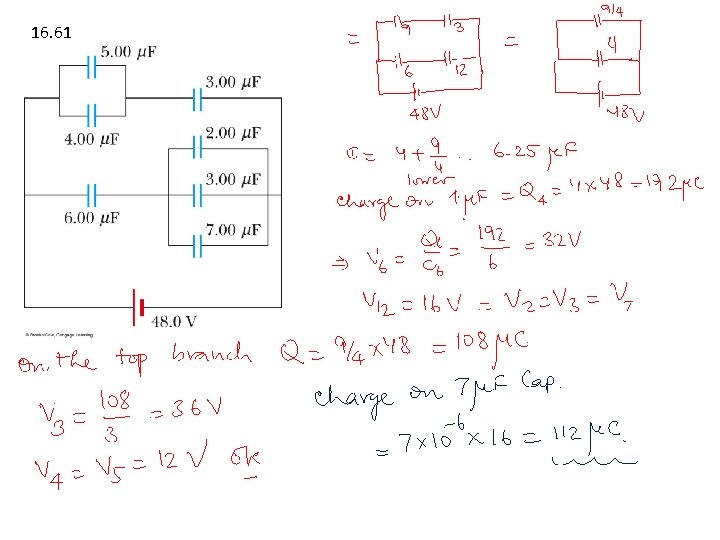 16.61
5.00 μF
3.00 μF
4.00 μF
2.00 μF
3.00 μF
6.00 μF
7.00 μF
48.0 V
© Brooks/Cole, Cengage Learning
= 9 3 = 9/4
6 12 4
48V 48V
C = 4 + 9/4 .. 6.25 μF
lower
charge on 4μF = Q4 = 4x48 = 192 μC
⇒ V6 = Q6/C6 = 192/6 = 32V
V12 = 16 V = V2 = V3 = V7
On the top branch Q = 9/4 x 48 = 108 μC
V3 = 108/3 = 36 V
V4 = V5 = 12 V Ok
charge on 7μF Cap.
= 7x10^-6 x 16 = 112 μC.